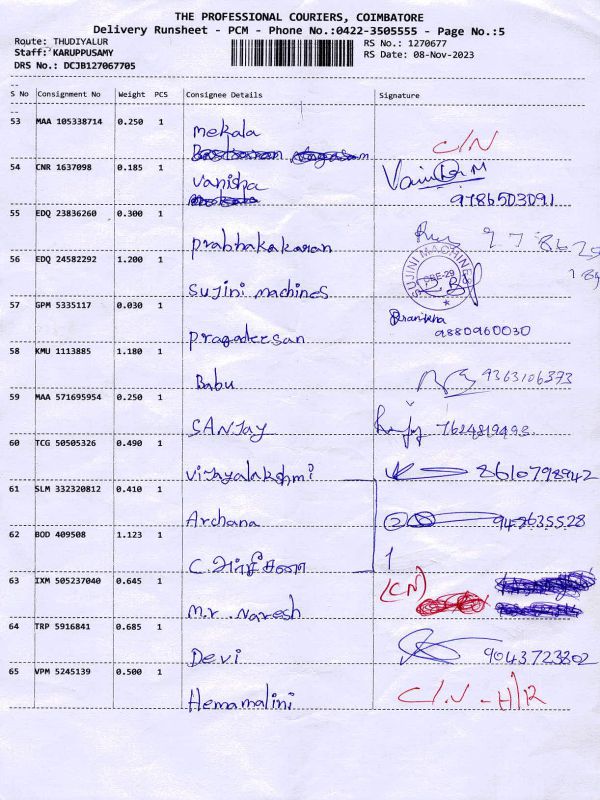 THE PROFESSIONAL COURIERS, COIMBATORE
Delivery Runsheet - PCM - Phone No.:0422-3505555 - Page No.:5
Route: THUDIYALUR RS No.: 1270677
Staff: KARUPPUSAMY RS Date: 08-Nov-2023
DRS No.: DCJB127067705
S No Consignment No Weight PCS Consignee Details Signature
53 MAA 105338714 0.250 1 Mekala C/N
54 CNR 1637098 0.185 1 Vanisha 9786503091
55 EDQ 23836260 0.300 1 Prabhakakaran
56 EDQ 24582292 1.200 1 Sujini Machines SUJINI MACHINES
57 GPM 5335117 0.030 1 Pragadeesan 9880960030
58 KMU 1113885 1.180 1 Babu 9363106373
59 MAA 571695954 0.250 1 SANJAY 7624819493
60 TCG 50505326 0.490 1 Vijayalakshmi 8610798942
61 SLM 332320812 0.410 1 Archana 948635528
62 BOD 409508 1.123 1 C. 1
63 IXM 505237040 0.645 1 M.r. Naresh (CN)
64 TRP 5916841 0.685 1 Devi 9043723802
65 VPM 5245139 0.500 1 Hemamalini